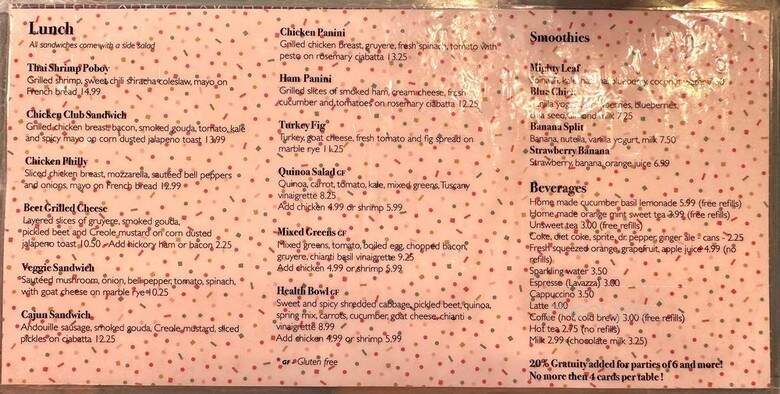 Lunch
All sandwiches come with a side salad
Thai Shrimp Poboy
Grilled shrimp, sweet chili shiracha coleslaw, mayo on
French bread 14.99
Chicken Club Sandwich
Grilled chicken breast, bacon, smoked gouda, tomato, kale
and spicy mayo on corn dusted jalapeno toast 13.99
Chicken Philly
Sliced chicken breast, mozzarella, sautéed bell peppers
and onions, mayo on French bread 12.99
Beet Grilled Cheese
Layered slices of gruyere, smoked gouda,
pickled beet and Creole mustard on corn dusted
jalapeno toast 10.50 Add hickory ham or bacon 2.25
Veggie Sandwich
Sautéed mushroom, onion, bell pepper, tomato, spinach,
with goat cheese on marble rye 10.25
Cajun Sandwich
Andouille sausage, smoked gouda, Creole mustard, sliced
pickles on ciabatta 12.25
Chicken Panini
Grilled chicken breast, gruyere, fresh spinach, tomato with
pesto on rosemary ciabatta 13.25
Ham Panini
Grilled slices of smoked ham, cream cheese, fresh
cucumber and tomatoes on rosemary ciabatta 12.25
Turkey Fig
Turkey, goat cheese, fresh tomato and fig spread on
marble rye 11.25
Quinoa Salad GF
Quinoa, carrot, tomato, kale, mixed greens, Tuscany
vinaigrette 8.25
Add chicken 4.99 or shrimp 5.99
Mixed Greens GF
Mixed greens, tomato, boiled egg, chopped bacon,
gruyere, chianti basil vinaigrette 9.25
Add chicken 4.99 or shrimp 5.99
Health Bowl GF
Sweet and spicy shredded cabbage, pickled beet, quinoa,
spring mix, carrots, cucumber, goat cheese, chianti
vinaigrette 8.99
Add chicken 4.99 or shrimp 5.99
GF = Gluten free
Smoothies
Mighty Leaf
kale, blueberry, coconut
Blue Chic
blueberries,
chia seed, almond milk 7.25
Banana Split
Banana, nutella, vanilla yogurt, milk 7.50
Strawberry Banana
Strawberry, banana, orange juice 6.99
Beverages
Home made cucumber basil lemonade 5.99 (free refills)
Home made orange mint sweet tea 3.99 (free refills)
Unsweet tea 3.00 (free refills)
Coke, diet coke, sprite, dr. pepper, ginger ale - cans - 2.25
Fresh squeezed orange, grapefruit, apple juice 4.99 (no
refills)
Sparkling water 3.50
Espresso (Lavazza) 3.00
Cappuccino 3.50
Latte 4.00
Coffee (hot, cold brew) 3.00 (free refills)
Hot tea 2.75 (no refills)
Milk 2.99 (chocolate milk 3.25)
20% Gratuity added for parties of 6 and more!
No more then 4 cards per table !